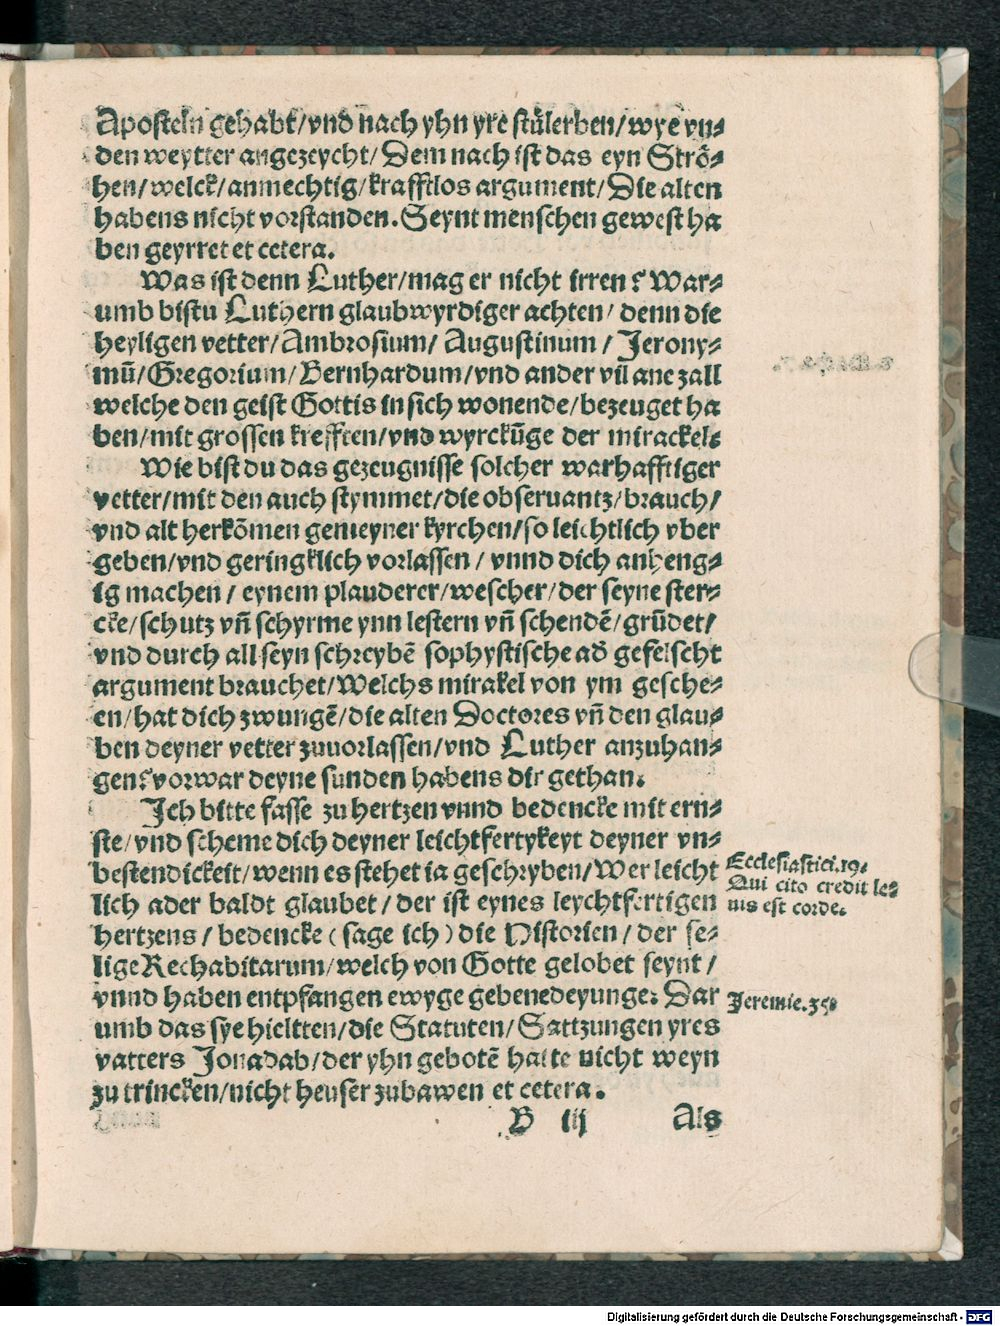 Aposteln gehabt/vnd nach yhn yre stůlerben/wye vn⸗
den weytter angezeycht/ Dem nach ist das eyn Strȏ⸗
hen/welck/anmechtig/krafftlos argument/Die alten
habens nicht vorstanden. Seynt menschen gewest ha
ben geyrret et cetera.
Was ist denn Luther/mag er nicht irren? War⸗
umb bistu Luthern glaubwyrdiger achten/ denn die
heyligen vetter/Ambrosium/ Augustinum / Jerony⸗
mũ/Gregorium/Bernhardum/vnd ander vil ane zall
welche den geist Gottis in sich wonende/bezeuget ha
ben/mit grossen krefften/vnd wyrckũge der mirackel.
Wie bist du das gezeugnisse solcher warhafftiger
vetter/mit den auch stymmet/die obseruantz/brauch/
vnd alt herkõmen gemeyner kyrchen/so leichtlich vber
geben/vnd geringklich vorlassen / vnnd dich anheng⸗
ig machen / eynem plauderer/wescher/der seyne ster⸗
cke/schutz vñ schyrme ynn lestern vñ schendẽ/grũdet/
vnd durch all seyn schreybẽ sophystische ad̕ gefelscht
argument brauchet/Welchs mirakel von ym gesche⸗
en/hat dich zwungẽ/die alten Doctores vñ den glau⸗
ben deyner vetter zuuorlassen/vnd Luther anzuhan⸗
gen? vorwar deyne sunden habens dir gethan.
Ich bitte fasse zu hertzen vnnd bedencke mit ern⸗
ste/vnd scheme dich deyner leichtfertykeyt deyner vn⸗
bestendickeit/wenn es stehet ia geschryben/Wer leicht
lich ader baldt glaubet/der ist eynes leychtfertigen
hertzens / bedencke (sage ich) die Historien/der se⸗
lige Rechabitarum/welch von Gotte gelobet seynt /
vnnd haben entpfangen ewyge gebenedeyunge: Dar
umb das sye hieltten/die Statuten/Sattzungen yres
vatters Jonadab/der yhn gebotẽ hatte nicht weyn
zu trincken/nicht heuser zubawen et cetera.
B iij Als
Ecclesiastici.19.
Qui cito credit le⸗
uis est corde.
Jeremie.35.
Digitalisierung gefördert durch die Deutsche Forschungsgemeinschaft - DFG